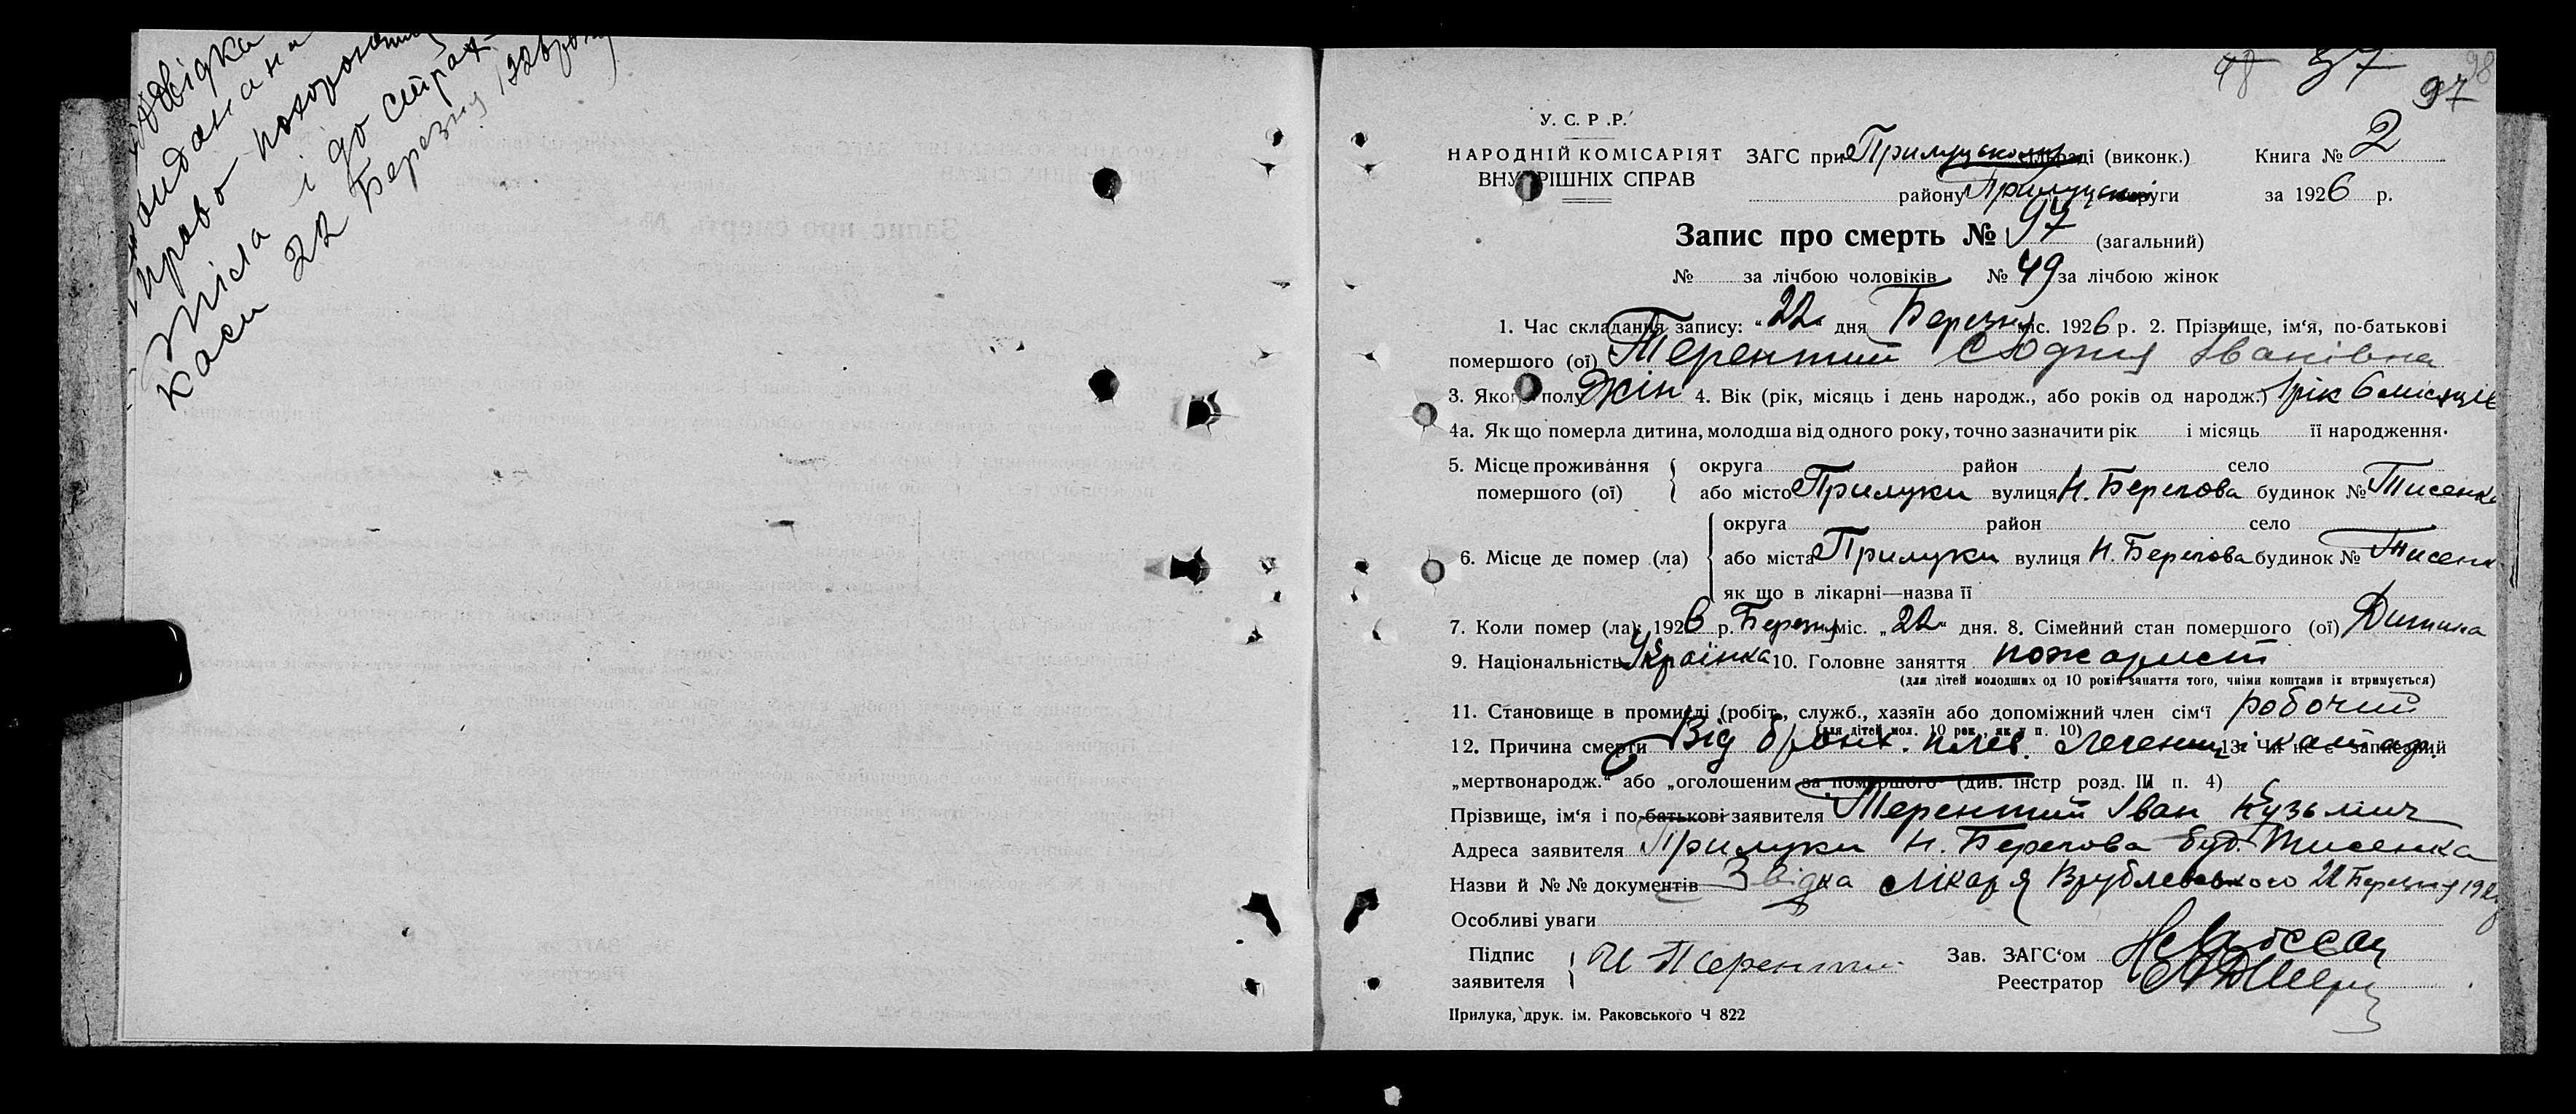 видана на
право похорона
тіла і до страх-
каси 22 Березня
98 57 98
97
У. С. Р. Р.
НАРОДНІЙ КОМІСАРІЯТ
ВНУТРІШНІХ СПРАВ
ЗАГС при Прилуцькому раді (виконк.)
району Прилуцької округи
Книга № 2
за 1926 р.
Запис про смерть № 97 (загальний)
№ за лічбою чоловіків № 49 за лічбою жінок
1. Час складання запису: "22" дня Березня міс. 1926 р. 2. Прізвище, ім'я, по-батькові
помершого (ої) Терентий Іванівна
3. Якого полу Жін 4. Вік (рік, місяць і день народж., або років од народж.) 1 рік 6 місяців
4а. Як що померла дитина, молодша від одного року, точно зазначити рік і місяць її народження.
5. Місце проживання помершого (ої) { округа район село
або місто Прилуки вулиця Н. Берегова будинок № Тисенка
6. Місце де помер (ла) { округа район село
або міста Прилуки вулиця Н. Берегова будинок № Тисенк
як що в лікарні—назва її
7. Коли помер (ла): 1926 р. Березня міс. „22" дня. 8. Сімейний стан помершого (ої) Дитина
9. Національність Українка 10. Головне заняття пожарист
(для дітей молодших од 10 років заняття того, чиїми коштами їх втримується)
11. Становище в промислі (робіт., служб., хазяїн або допоміжний член сім'ї робочий
(для дітей мол. 10 рок., як у п. 10)
12. Причина смерти Від бронх. плев. Легениц і катар. 13. Чи не є записаний
„мертвонародж." або „оголошеним за помершого" (див. інстр розд. III п. 4)
Прізвище, ім'я і по-батькові заявителя Терентий Іван Кузьмич
Адреса заявителя Прилуки Н. Берегова буд. Тисенка
Назви й № № документів Звідка лікаря Врублевського 22 Березня 192
Особливі уваги
Підпис заявителя { И Терентий
Зав. ЗАГС'ом
Реестратор
Прилука, друк. ім. Раковського Ч 822